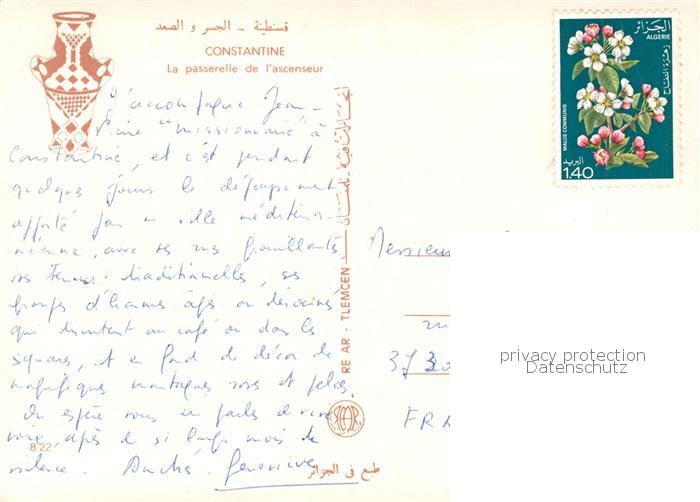 قسنطينة - الجسر و الصعد
CONSTANTINE
La passerelle de l'ascenseur
الجزائر
ALGERIE
زهرة التفاح
MALUS COMMUNIS
البريد
1.40
J'accompagne Jean-
"missionnaire" à
Constantine, et c'est pendant
quelques jours le dépaysement
apporté par une ville méditerra-
néenne, avec ses rues grouillantes
ses femmes traditionnelles, ses
groupes d'hommes âgés ou désoeuvrés
qui discutent au café ou dans les
squares, et en fond de décor de
magnifiques montagnes roses et pelées.
On espère vous
après de si longs mois de
silence. Geneviève
RE AR - TLEMCEN
8.22
طبع في الجزائر
Messieu
373
FRA
privacy protection
Datenschutz